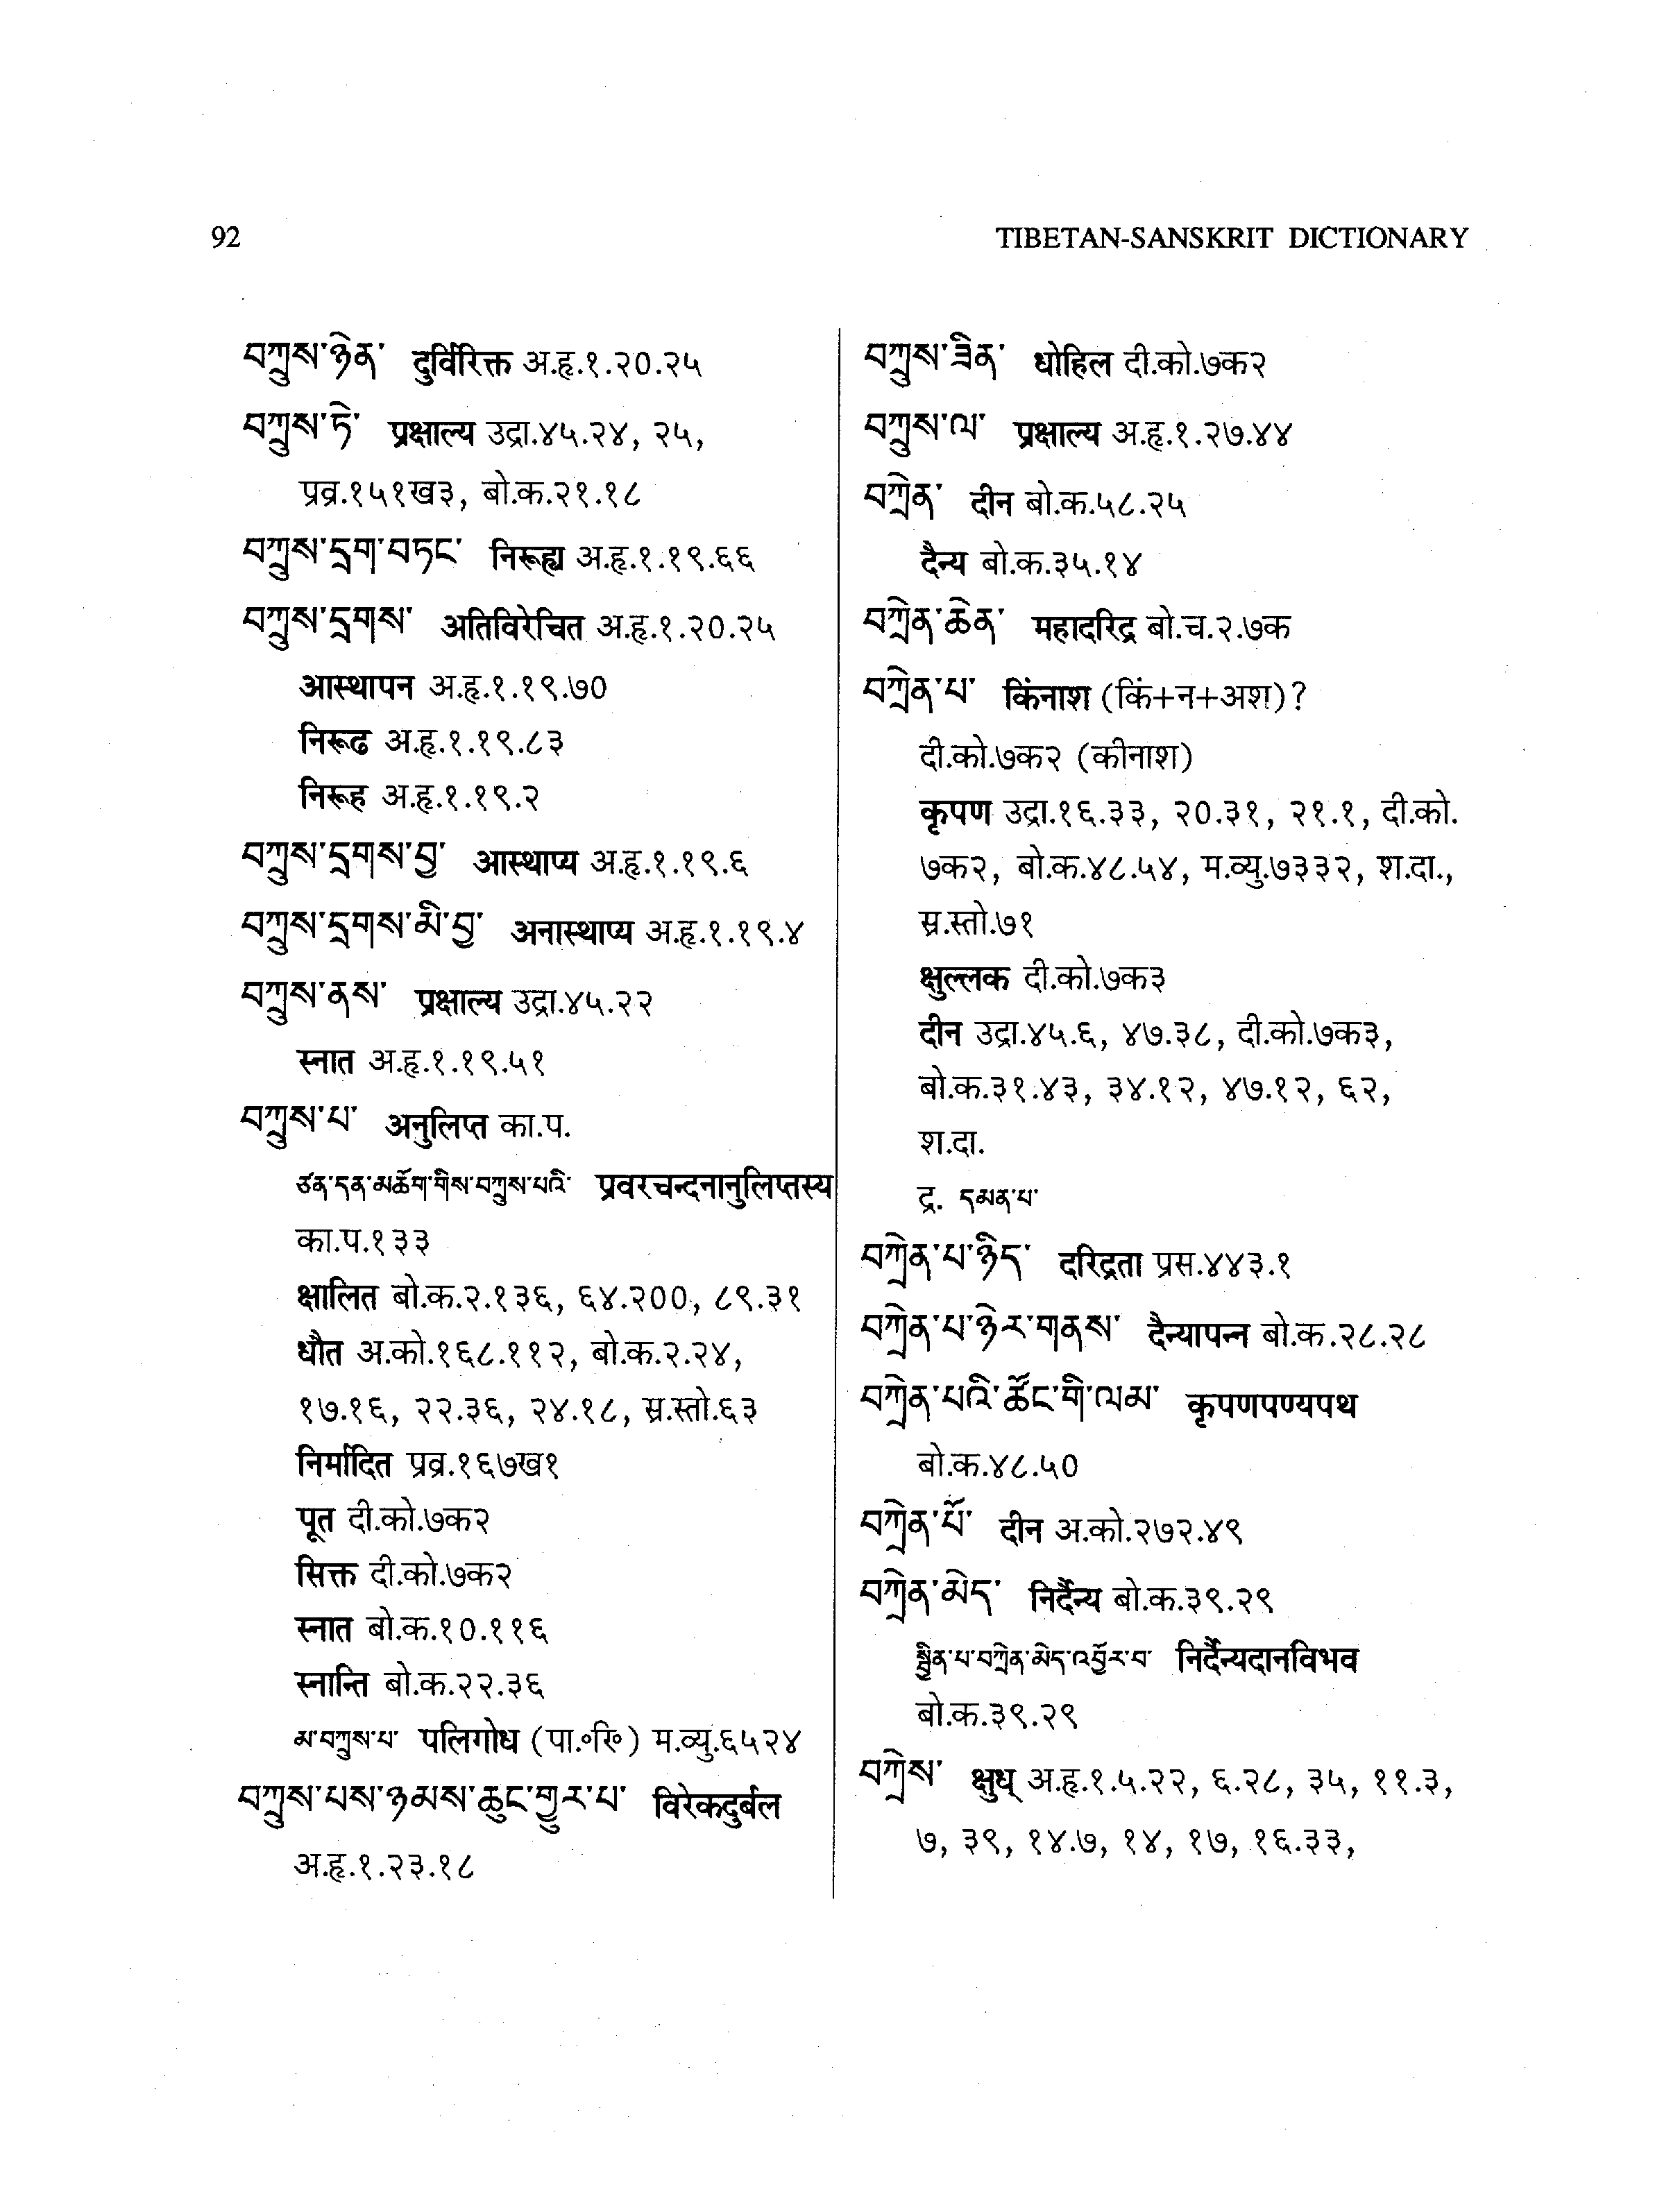 92
TIBETAN-SANSKRIT DICTIONARY
བཀྲུས་ཉེན་ दुर्विरिक्त अ.हृ.१.२०.२५
བཀྲུས་ཏེ་ प्रक्षाल्य उद्रा.४५.२४, २५,
प्रव्र.१५१ख३, बो.क.२१.१८
བཀྲུས་དྲག་བཏང་ निरूह्य अ.हृ.१.१९.६६
བཀྲུས་དྲགས་ अतिविरेचित अ.हृ.१.२०.२५
आस्थापन अ.हृ.१.१९.७०
निरूढ अ.हृ.१.१९.८३
निरूह अ.हृ.१.१९.२
བཀྲུས་དྲགས་བྱ་ आस्थाप्य अ.हृ.१.१९.६
བཀྲུས་དྲགས་མི་བྱ་ अनास्थाप्य अ.हृ.१.१९.४
བཀྲུས་ནས་ प्रक्षाल्य उद्रा.४५.२२
स्नात अ.हृ.१.१९.५१
བཀྲུས་པ་ अनुलिप्त का.प.
ཙན་དན་མཆོག་གིས་བཀྲུས་པའི་ प्रवरचन्दनानुलिप्तस्य
का.प.१३३
क्षालित बो.क.२.१३६, ६४.२००, ८९.३१
धौत अ.को.१६८.११२, बो.क.२.२४,
१७.१६, २२.३६, २४.१८, स्र.स्तो.६३
निर्मादित प्रव्र.१६७ख१
पूत दी.को.७क२
सिक्त दी.को.७क२
स्नात बो.क.१०.११६
स्नान्ति बो.क.२२.३६
མ་བཀྲུས་པ་ पलिगोध (पा.॰रि॰) म.व्यु.६५२४
བཀྲུས་པས་ཉམས་ཆུང་གྱུར་པ་ विरेकदुर्बल
अ.हृ.१.२३.१८
བཀྲུས་ཟིན་ धोहिल दी.को.७क२
བཀྲུས་ལ་ प्रक्षाल्य अ.हृ.१.२७.४४
བཀྲེན་ दीन बो.क.५८.२५
दैन्य बो.क.३५.१४
བཀྲེན་ཆེན་ महादरिद्र बो.च.२.७क
བཀྲེན་པ་ किंनाश (किं+न+अश)?
दी.को.७क२ (कीनाश)
कृपण उद्रा.१६.३३, २०.३१, २१.१, दी.को.
७क२, बो.क.४८.५४, म.व्यु.७३३२, श.दा.,
स्र.स्तो.७१
क्षुल्लक दी.को.७क३
दीन उद्रा.४५.६, ४७.३८, दी.को.७क३,
बो.क.३१.४३, ३४.१२, ४७.१२, ६२,
श.दा.
द्र. དམན་པ་
བཀྲེན་པ་ཉིད་ दरिद्रता प्रस.४४३.१
བཀྲེན་པ་ཉེར་གནས་ दैन्यापन्न बो.क.२८.२८
བཀྲེན་པའི་ཚོང་གི་ལམ་ कृपणपण्यपथ
बो.क.४८.५०
བཀྲེན་པོ་ दीन अ.को.२७२.४९
བཀྲེན་མེད་ निर्दैन्य बो.क.३९.२९
སྦྱིན་པ་བཀྲེན་མེད་འབྱོར་བ་ निर्दैन्यदानविभव
बो.क.३९.२९
བཀྲེས་ क्षुध् अ.हृ.१.५.२२, ६.२८, ३५, ११.३,
७, ३९, १४.७, १४, १७, १६.३३,